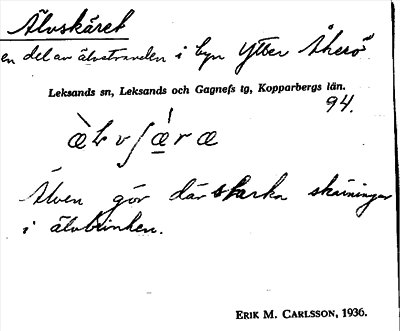 Älvskäret
en del av älvstranden i byn Ytter Åherö
Leksands sn, Leksands och Gagnefs tg, Kopparbergs län.
94.
Älven gör där starka skärningar
i älvbrinken.
ERIK M. CARLSSON, 1936.